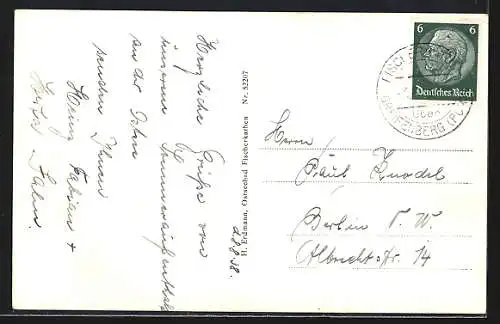 Herzliche Grüße von
unserem Sommeraufenthalt
an der Ostsee
senden Ihnen
Heinz Fabian +
28.8.38.
H. Erdmann, Ostseebad Fischerkathen Nr. 52207
6 6
Deutsches Reich
über
GREIFENBERG (POM)
Herrn
Paul Knodel
Berlin N. W.
Albrecht-Str. 14